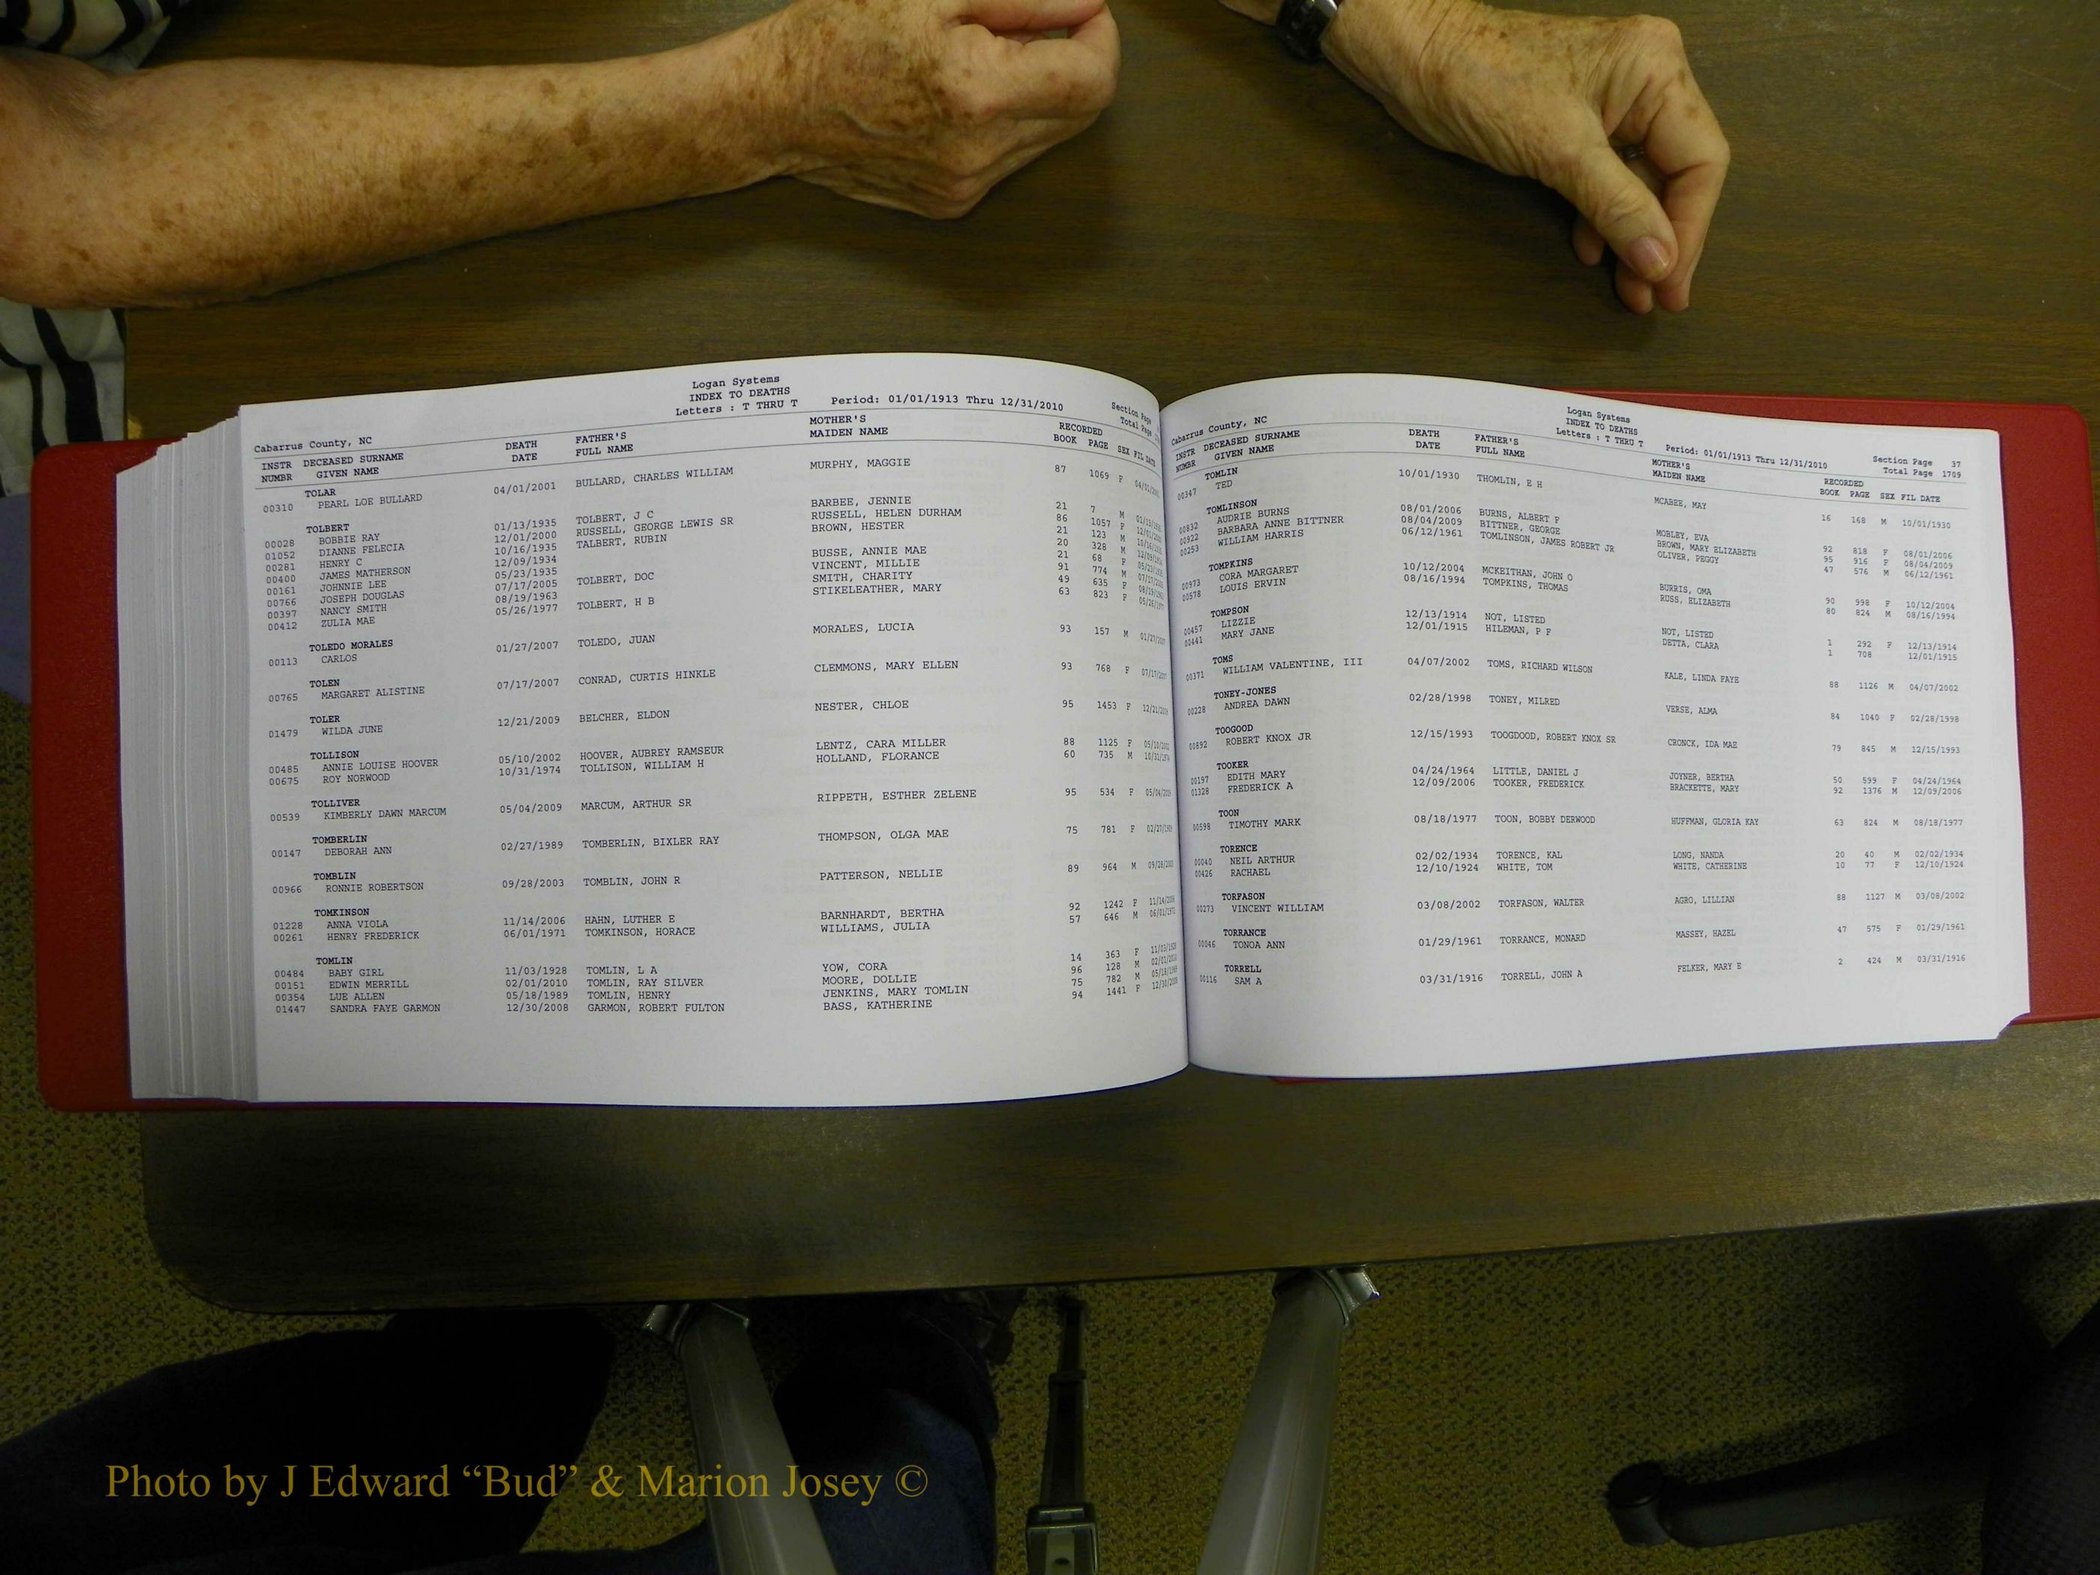 Logan Systems
INDEX TO DEATHS
Letters : T THRU T Period: 01/01/1913 Thru 12/31/2010 Section Page
Cabarrus County, NC Total Page
INSTR DECEASED SURNAME DEATH FATHER'S MOTHER'S RECORDED
NUMBR GIVEN NAME DATE FULL NAME MAIDEN NAME BOOK PAGE SEX FIL DATE
TOLAR
00310 PEARL LOE BULLARD 04/01/2001 BULLARD, CHARLES WILLIAM MURPHY, MAGGIE 87 1069 F
TOLBERT
00028 BOBBIE RAY 01/13/1935 TOLBERT, J C BARBEE, JENNIE 21 7 M
01052 DIANNE FELECIA 12/01/2000 RUSSELL, GEORGE LEWIS SR RUSSELL, HELEN DURHAM 86 1057 F
00281 HENRY C 10/16/1935 TALBERT, RUBIN BROWN, HESTER 21 123 M
00400 JAMES MATHERSON 12/09/1934 20 328 M
00161 JOHNNIE LEE 05/23/1935 BUSSE, ANNIE MAE 21 68 F
00766 JOSEPH DOUGLAS 07/17/2005 TOLBERT, DOC VINCENT, MILLIE 91 774 M
00397 NANCY SMITH 08/19/1963 SMITH, CHARITY 49 635 F
00412 ZULIA MAE 05/26/1977 TOLBERT, H B STIKELEATHER, MARY 63 823 F
TOLEDO MORALES
00113 CARLOS 01/27/2007 TOLEDO, JUAN MORALES, LUCIA 93 157 M
TOLEN
00765 MARGARET ALISTINE 07/17/2007 CONRAD, CURTIS HINKLE CLEMMONS, MARY ELLEN 93 768 F
TOLER
01479 WILDA JUNE 12/21/2009 BELCHER, ELDON NESTER, CHLOE 95 1453 F
TOLLISON
00485 ANNIE LOUISE HOOVER 05/10/2002 HOOVER, AUBREY RAMSEUR LENTZ, CARA MILLER 88 1125 F
00675 ROY NORWOOD 10/31/1974 TOLLISON, WILLIAM H HOLLAND, FLORANCE 60 735 M
TOLLIVER
00539 KIMBERLY DAWN MARCUM 05/04/2009 MARCUM, ARTHUR SR RIPPETH, ESTHER ZELENE 95 534 F
TOMBERLIN
00147 DEBORAH ANN 02/27/1989 TOMBERLIN, BIXLER RAY THOMPSON, OLGA MAE 75 781 F
TOMBLIN
00966 RONNIE ROBERTSON 09/28/2003 TOMBLIN, JOHN R PATTERSON, NELLIE 89 964 M
TOMKINSON
01228 ANNA VIOLA 11/14/2006 HAHN, LUTHER E BARNHARDT, BERTHA 92 1242 F
00261 HENRY FREDERICK 06/01/1971 TOMKINSON, HORACE WILLIAMS, JULIA 57 646 M
TOMLIN
00484 BABY GIRL 11/03/1928 TOMLIN, L A YOW, CORA 14 363 F
00151 EDWIN MERRILL 02/01/2010 TOMLIN, RAY SILVER MOORE, DOLLIE 96 128 M
00354 LUE ALLEN 05/18/1989 TOMLIN, HENRY JENKINS, MARY TOMLIN 75 782 M
01447 SANDRA FAYE GARMON 12/30/2008 GARMON, ROBERT FULTON BASS, KATHERINE 94 1441 F
Logan Systems
INDEX TO DEATHS
Letters : T THRU T Period: 01/01/1913 Thru 12/31/2010 Section Page 37
Cabarrus County, NC Total Page 1709
INSTR DECEASED SURNAME DEATH FATHER'S MOTHER'S RECORDED
NUMBR GIVEN NAME DATE FULL NAME MAIDEN NAME BOOK PAGE SEX FIL DATE
TOMLIN
00347 TED 10/01/1930 THOMLIN, E H MCABEE, MAY 16 168 M 10/01/1930
TOMLINSON
00832 AUDRIE BURNS 08/01/2006 BURNS, ALBERT P MOBLEY, EVA 92 818 F 08/01/2006
00922 BARBARA ANNE BITTNER 08/04/2009 BITTNER, GEORGE BROWN, MARY ELIZABETH 95 916 F 08/04/2009
00253 WILLIAM HARRIS 06/12/1961 TOMLINSON, JAMES ROBERT JR OLIVER, PEGGY 47 576 M 06/12/1961
TOMPKINS
00973 CORA MARGARET 10/12/2004 MCKEITHAN, JOHN O BURRIS, OMA 90 998 F 10/12/2004
00578 LOUIS ERVIN 08/16/1994 TOMPKINS, THOMAS RUSS, ELIZABETH 80 824 M 08/16/1994
TOMPSON
00457 LIZZIE 12/13/1914 NOT, LISTED NOT, LISTED 1 292 F 12/13/1914
00441 MARY JANE 12/01/1915 HILEMAN, P F DETTA, CLARA 1 708 12/01/1915
TOMS
00371 WILLIAM VALENTINE, III 04/07/2002 TOMS, RICHARD WILSON KALE, LINDA FAYE 88 1126 M 04/07/2002
TONEY-JONES
00228 ANDREA DAWN 02/28/1998 TONEY, MILRED VERSE, ALMA 84 1040 F 02/28/1998
TOOGOOD
00892 ROBERT KNOX JR 12/15/1993 TOOGDOOD, ROBERT KNOX SR CRONCK, IDA MAE 79 845 M 12/15/1993
TOOKER
00197 EDITH MARY 04/24/1964 LITTLE, DANIEL J JOYNER, BERTHA 50 599 F 04/24/1964
01328 FREDERICK A 12/09/2006 TOOKER, FREDERICK BRACKETTE, MARY 92 1376 M 12/09/2006
TOON
00598 TIMOTHY MARK 08/18/1977 TOON, BOBBY DERWOOD HUFFMAN, GLORIA KAY 63 824 M 08/18/1977
TORENCE
00040 NEIL ARTHUR 02/02/1934 TORENCE, KAL LONG, NANDA 20 40 M 02/02/1934
00426 RACHAEL 12/10/1924 WHITE, TOM WHITE, CATHERINE 10 77 F 12/10/1924
TORFASON
00273 VINCENT WILLIAM 03/08/2002 TORFASON, WALTER AGRO, LILLIAN 88 1127 M 03/08/2002
TORRANCE
00046 TONOA ANN 01/29/1961 TORRANCE, MONARD MASSEY, HAZEL 47 575 F 01/29/1961
TORRELL
00116 SAM A 03/31/1916 TORRELL, JOHN A FELKER, MARY E 2 424 M 03/31/1916
Photo by J Edward “Bud” & Marion Josey ©